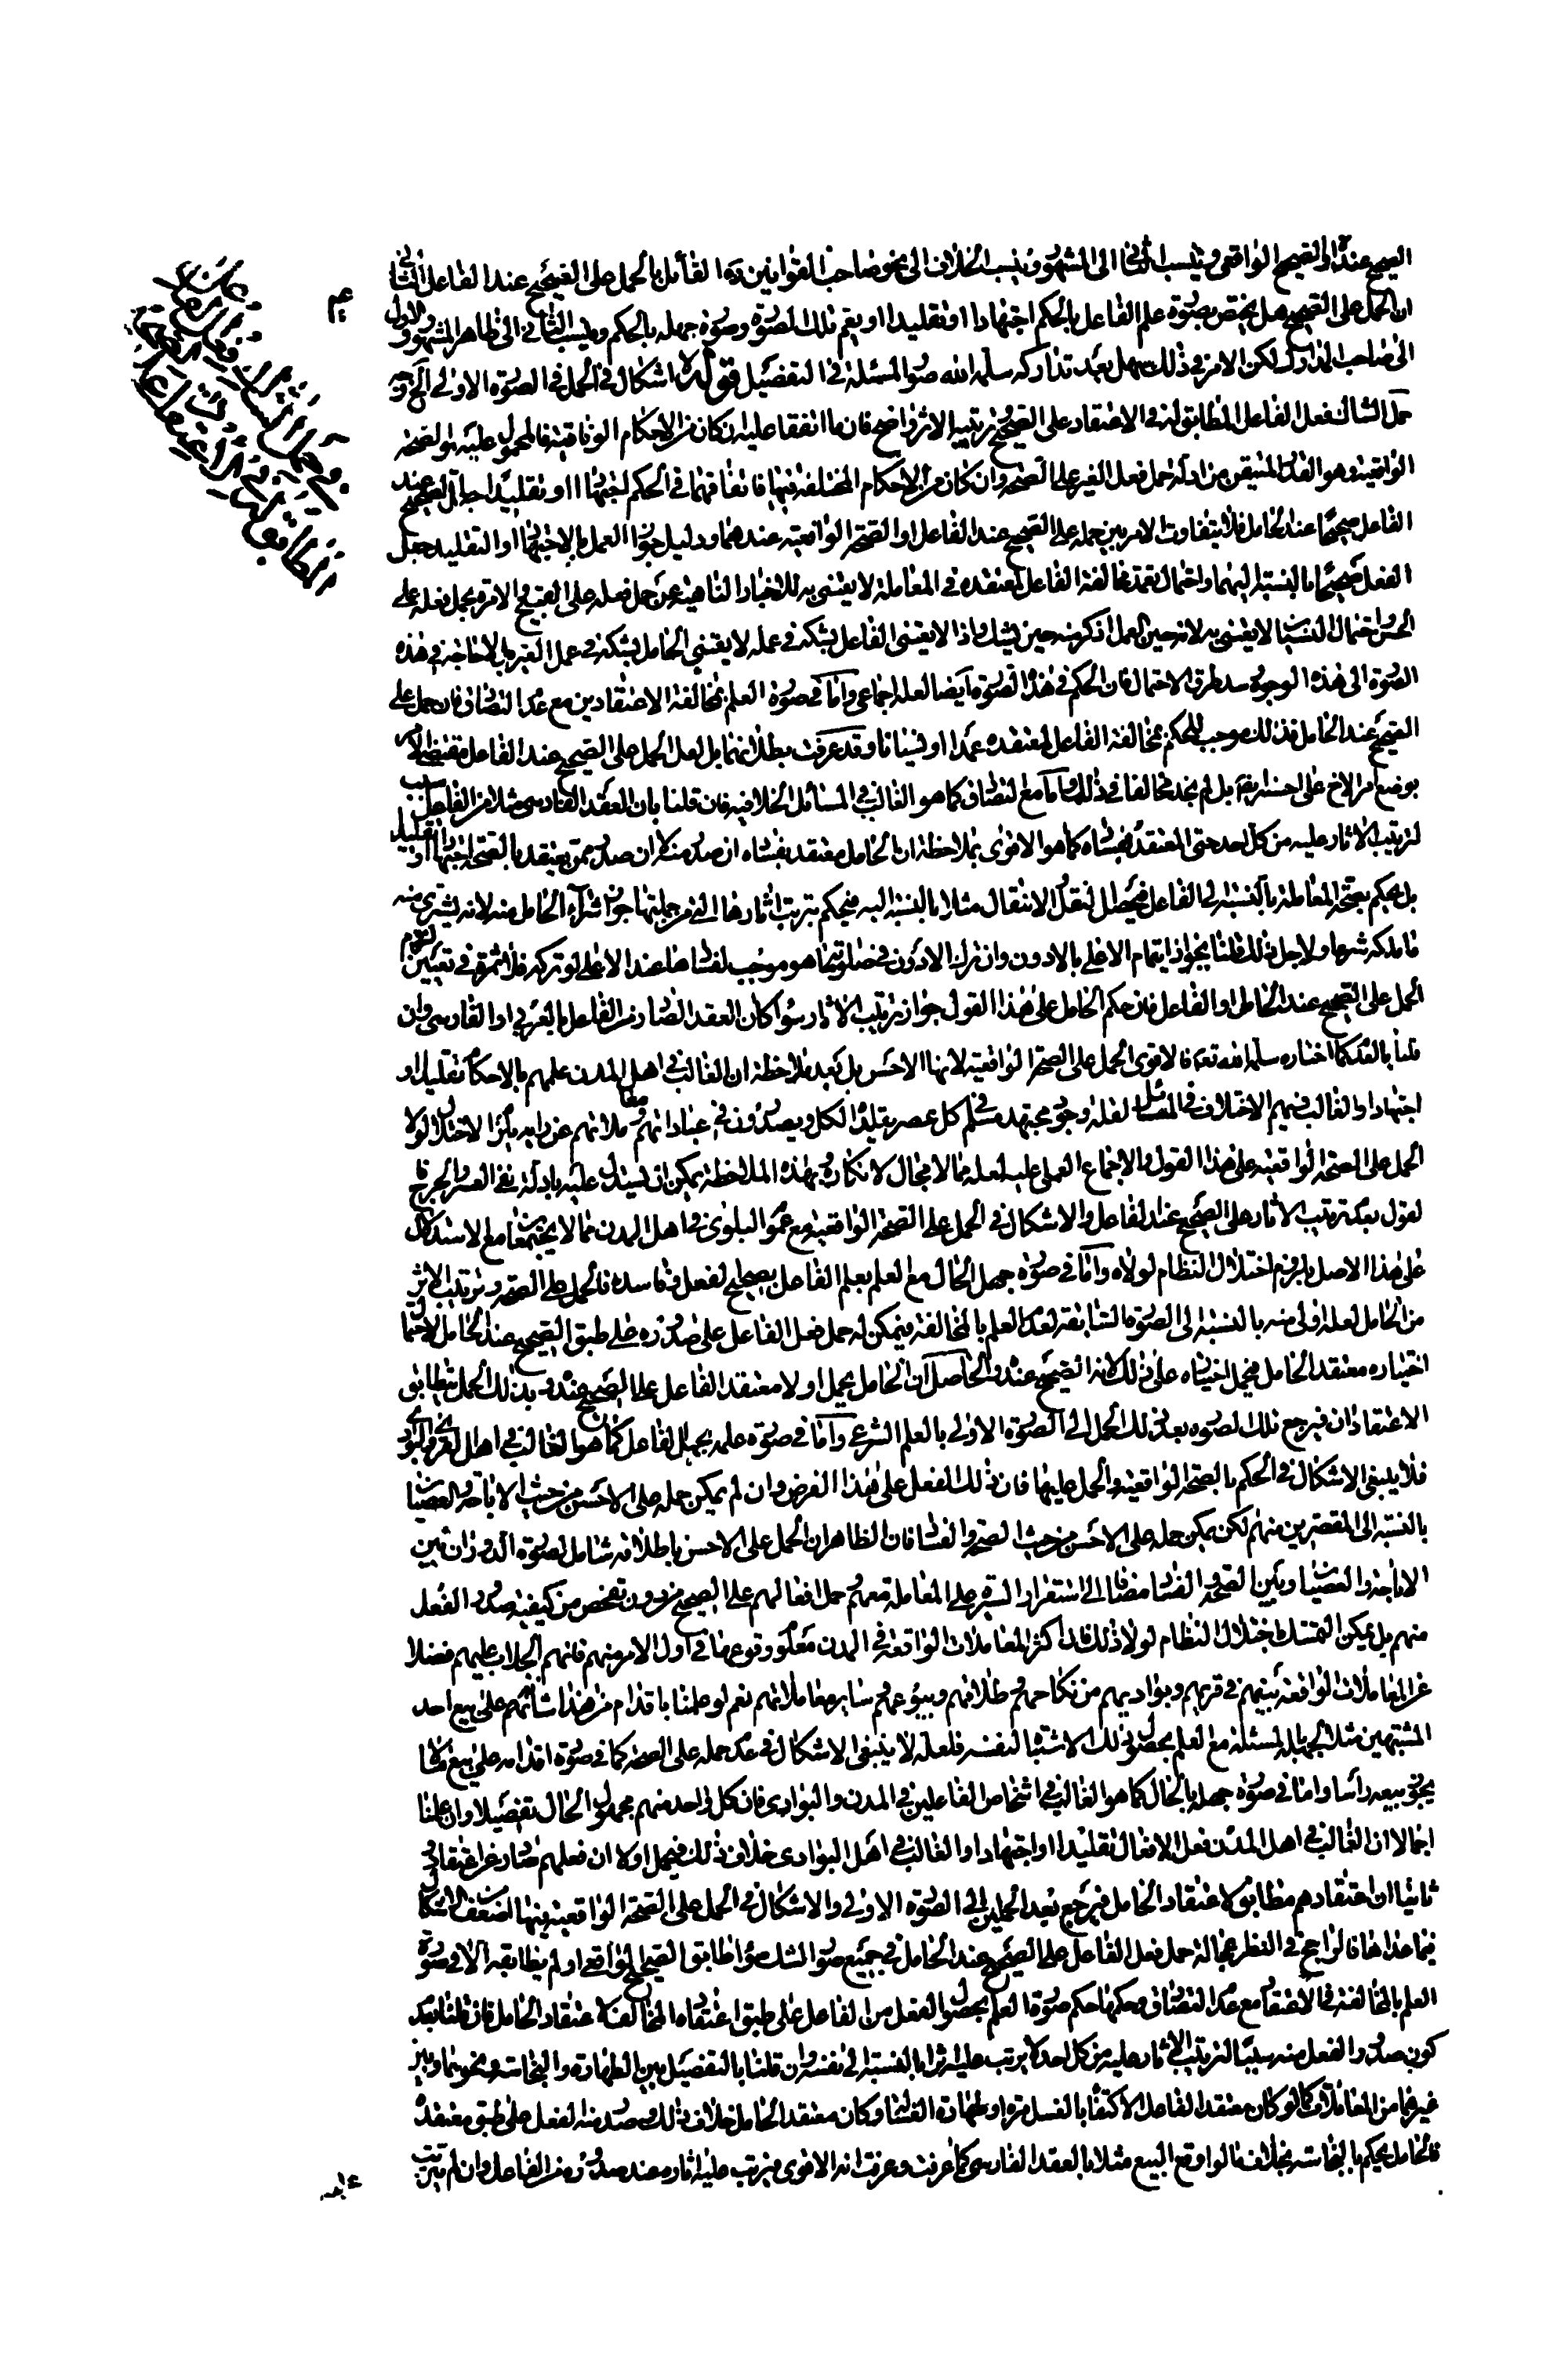 الصحيح عنده او الصحيح الواقعى وينسب الثانى الى المشهور وينسب الخلاف الى نحو صاحب القوانين ره القائل بالحمل على الصحيح عند الفاعل الثانى
ان الحمل على الصحيح هل يختص بصورة علم الفاعل بالحكم اجتهادا او تقليدا او يعم تلك الصورة وصورة جهله بالحكم وينسب الثانى الى ظاهر المشهور والاول
الى صاحب المدارك لكن الامر فى ذلك سهل بعد تداركه سلمه الله صور المسئلة فى التفصيل قوله لا اشكال فى الحمل فى الصورة الاولى الخ وجه
حمل الشاك فعل الفاعل المطابق له فى الاعتقاد على الصحيح وترتيبه الاثر واضح فان ما اتفقا عليه ان كان من الاحكام الوفاقية فالمحمول عليه هو الصحة
الواقعية وهو القدر المتيقن من ادلة حمل فعل الغير على الصحة وان كان من الاحكام المختلفة فيها فاتفاقهما فى الحكم اجتهادا او تقليدا جعل الصحيح عند
الفاعل صحيحا عند الحامل فلا يتفاوت الامر بين حمله على الصحيح عند الفاعل او الصحة الواقعية عندهما ودليل جواز العمل بالاجتهاد او التقليد جعل
الفعل صحيحا بالنسبة اليهما واحتمال تعمد مخالفة الفاعل لمعتقده فى المعاملة لا يعتنى به للاخبار الناهية عن حمل فعله على القبيح الامرة بحمل فعله على
الحسن واحتمال النسيان لا يعتنى به لانه حين العمل اذكر منه حين يشك واذا لا يعتنى الفاعل بشكه فى عمله لا يعتنى الحامل بشكه فى عمل الغير بل لا حاجة فى هذه
الصورة الى هذه الوجوه سد طرق الاحتمال فان الحكم فى هذه الصورة ايضا لعله اجماعى واما فى صورة العلم بمخالفة الاعتقادين مع عدم التصادق فان حمل على
الصحيح عند الحامل فذلك موجب للحكم بمخالفة الفاعل لمعتقده عمدا او نسيانا وقد عرفت بطلانهما بل لعل الحمل على الصحيح عند الفاعل مقتضى الامر
بوضع امر الاخ على احسنه بل لم نجد مخالفا فى ذلك واما مع التصادق كما هو الغالب فى المسائل الخلافية فان قلنا بان العقد الفارسى مثلا من الفاعل سبب
لترتيب الاثار عليه من كل احد حتى المعتقد بفساده كما هو الاقوى بملاحظة ان الحامل معتقد بفساده ان صدر منه لا ان صدر ممن يعتقد بالصحة اجتهادا او تقليدا
بل يحكم بصحة المعاملة بالنسبة الى الفاعل فيحصل النقل والانتقال مثلا بالنسبة اليه فيحكم بترتب اثارها التى من جملتها جواز شراء الحامل منه لانه يشترى منه
ما ملكه شرعا ولاجل ذلك قلنا بجواز ايتمام الاعلى بالادون وان ترك الادون فى صلوته ما هو موجب لفسادها عند الاعلى لو تركه فلا ثمرة فى تعيين لزوم
الحمل على الصحيح عند الحامل او الفاعل فان حكم الحامل على هذا القول جواز ترتيب الاثار سواء كان العقد الصادر من الفاعل بالعربى او الفارسى وان
قلنا بالعدم كما اختاره سلمه الله تعالى فالاقوى الحمل على الصحة الواقعية لانها الاحسن بل بعد ملاحظة ان الغالب فى اهل المدن علمهم بالاحكام تقليدا او
اجتهادا والغالب فيهم الاختلاف فى المسائل لقلة وجود مجتهد مسلم كل عصر يقلده الكل ويصدرون فى عباداتهم ومعاملاتهم عن رايه يلزم الاختلال لولا
الحمل على الصحة الواقعية على هذا القول والاجماع العملى عليه لعله مما لا مجال لانكاره وبهذه الملاحظة يمكن ان يستدل عليه بادلة نفى العسر والحرج فا
لقول بعدم ترتيب الاثار على الصحيح عند الفاعل والاشكال فى الحمل على الصحة الواقعية مع عموم البلوى فى اهل المدن مما لا يجتمعان مع الاستدلال
على هذا الاصل بلزوم اختلال النظام لولاه واما فى صورة جهل الحال مع العلم بعلم الفاعل بصحيح الفعل وفاسده فالحمل على الصحة وترتيب الاثر
من الحامل لعله اولى منه بالنسبة الى الصورة السابقة لعدم العلم بالمخالفة فيمكن له حمل فعل الفاعل على صدوره على طبق الصحيح عند الحامل لاحتمال
اختياره معتقد الحامل فيحمل اختياره على ذلك لانه الصحيح عنده والحاصل ان الحامل يحمل اولا معتقد الفاعل على الصحيح عنده وبذلك الحمل يتطابق
الاعتقادان فيرجع تلك الصورة بعد ذلك الحمل الى الصورة الاولى بالعلم الشرعى واما فى صورة علمه بجهل الفاعل كما هو الغالب فى اهل القرى والبوادى
فلا ينبغى الاشكال فى الحكم بالصحة الواقعية والحمل عليها فان ذلك الفعل على هذا الفرض وان لم يمكن حمله على الاحسن من حيث الاباحة والعصيان
بالنسبة الى المقصرين منهم لكن يمكن حمله على الاحسن من حيث الصحة والفساد فان الظاهر ان الحمل على الاحسن باطلاقه شامل لصورة الدوران بين
الاباحة والعصيان وبين الصحة والفساد مضافا الى استقرار السيرة على المعاملة معهم وحمل افعالهم على الصحيح من دون تفحص من كيفية صدور الفعل
منهم بل يمكن التمسك باختلال النظام لولا ذلك فان اكثر المعاملات الواقعة فى المدن معلوم وقوعها فى اول الامر منهم فانهم الجلاب عليهم فضلا
عن المعاملات الواقعة بينهم فى قريهم وبواديهم من نكاحهم وطلاقهم وبيوعهم وساير معاملاتهم نعم لو علمنا باقدام من هذا شانهم على بيع احد
المشتبهين مثلا لجهله بالمسئلة مع العلم بحصول ذلك الاشتباه لنفسه فلعله لا ينبغى الاشكال فى عدم حمله على الصحة كما فى صورة اقدامه على بيع ما لا
يجوز بيعه راسا واما فى صورة جهله بالحال كما هو الغالب فى اشخاص الفاعلين فى المدن والبوادى فان كل واحد منهم مجهول الحال تفصيلا وان علمنا
اجمالا ان الغالب فى اهل المدن فعل الافعال تقليدا او اجتهادا والغالب فى اهل البوادى خلاف ذلك فيحمل اولا ان فعلهم صادر عن اعتقاد
ثانيا ان اعتقادهم مطابق لاعتقاد الحامل فيرجع بعد الحملين الى الصورة الاولى والاشكال فى الحمل على الصحة الواقعية فيها اضعف من الاشكال
فيما عداها فالراجح فى النظر عجالة حمل فعل الفاعل على الصحيح عند الحامل فى جميع صور الشك سواء طابق الصحيح الواقعى او لم يطابقه الا فى صورة
العلم بالمخالفة فى الاعتقاد مع عدم التصادق فحكمها حكم صورة العلم بحصول الفعل من الفاعل على طبق اعتقاده المخالف لاعتقاد الحامل فان قلنا بعدم
كون صدور الفعل منه سببا لترتيب الاثار عليه من كل احد لا يرتب عليه اثرا بالنسبة الى نفسه وان قلنا بالتفصيل بين الطهارة والنجاسة ونحوهما وبين
غيرهما من المعاملات كما لو كان معتقد الفاعل الاكتفاء بالغسل مرة او طهارة الغسالة وكان معتقد الحامل خلاف ذلك وصدر منه الفعل على طبق معتقده
فالحامل يحكم بالنجاسة بخلاف ما لو اوقع البيع مثلا بالعقد الفارسى كما عرفت وعرفت انه الاقوى فيرتب عليه اثاره عند صدوره من الفاعل وان لم يترتب
عليه